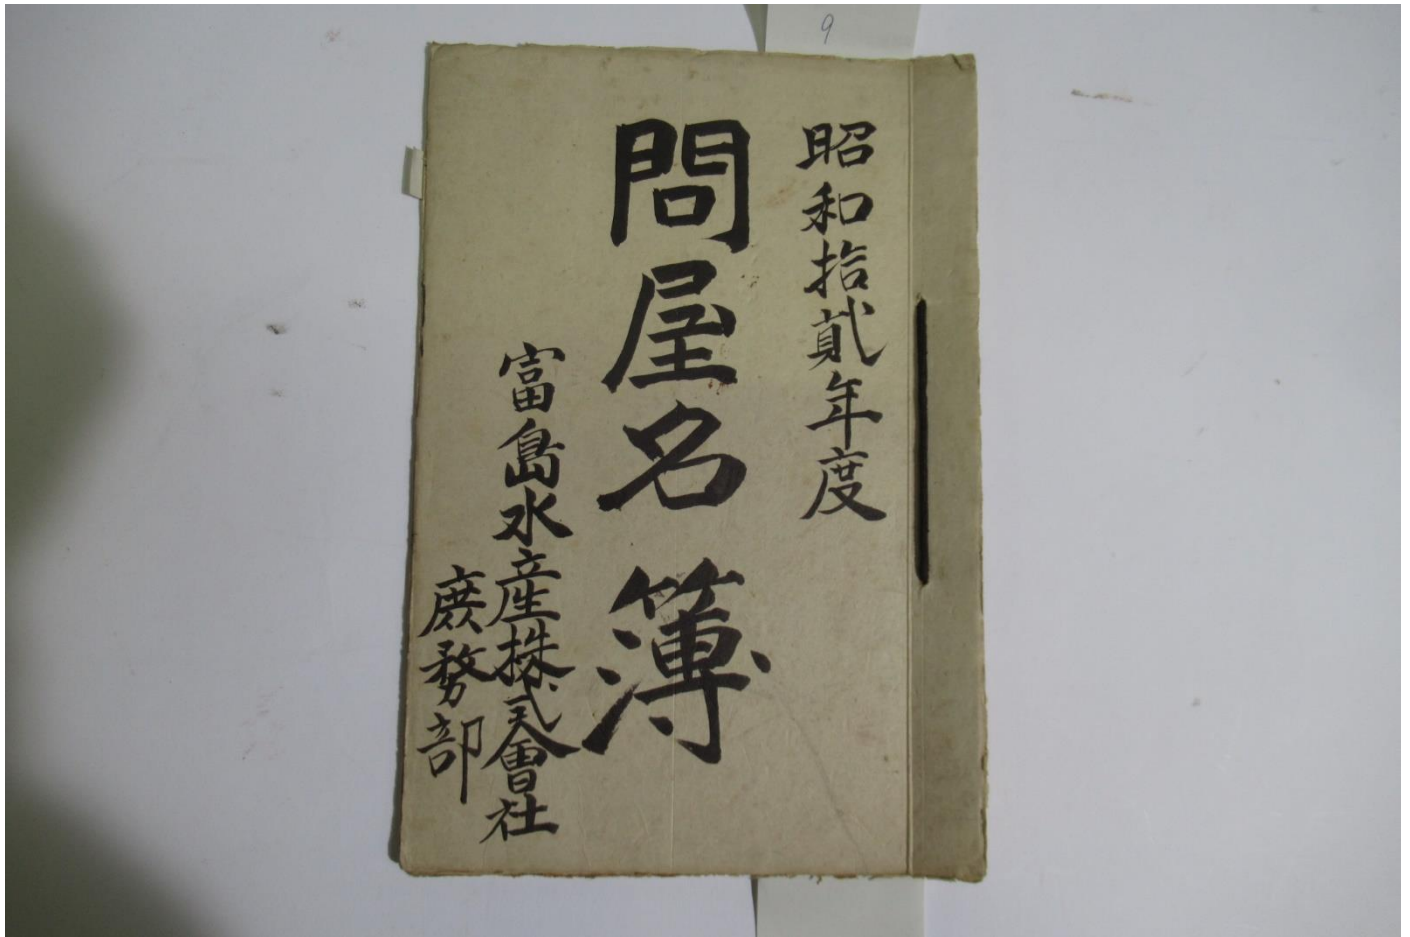 9
昭和拾貳年度
問屋名簿
富島水産株式會社
庶務部